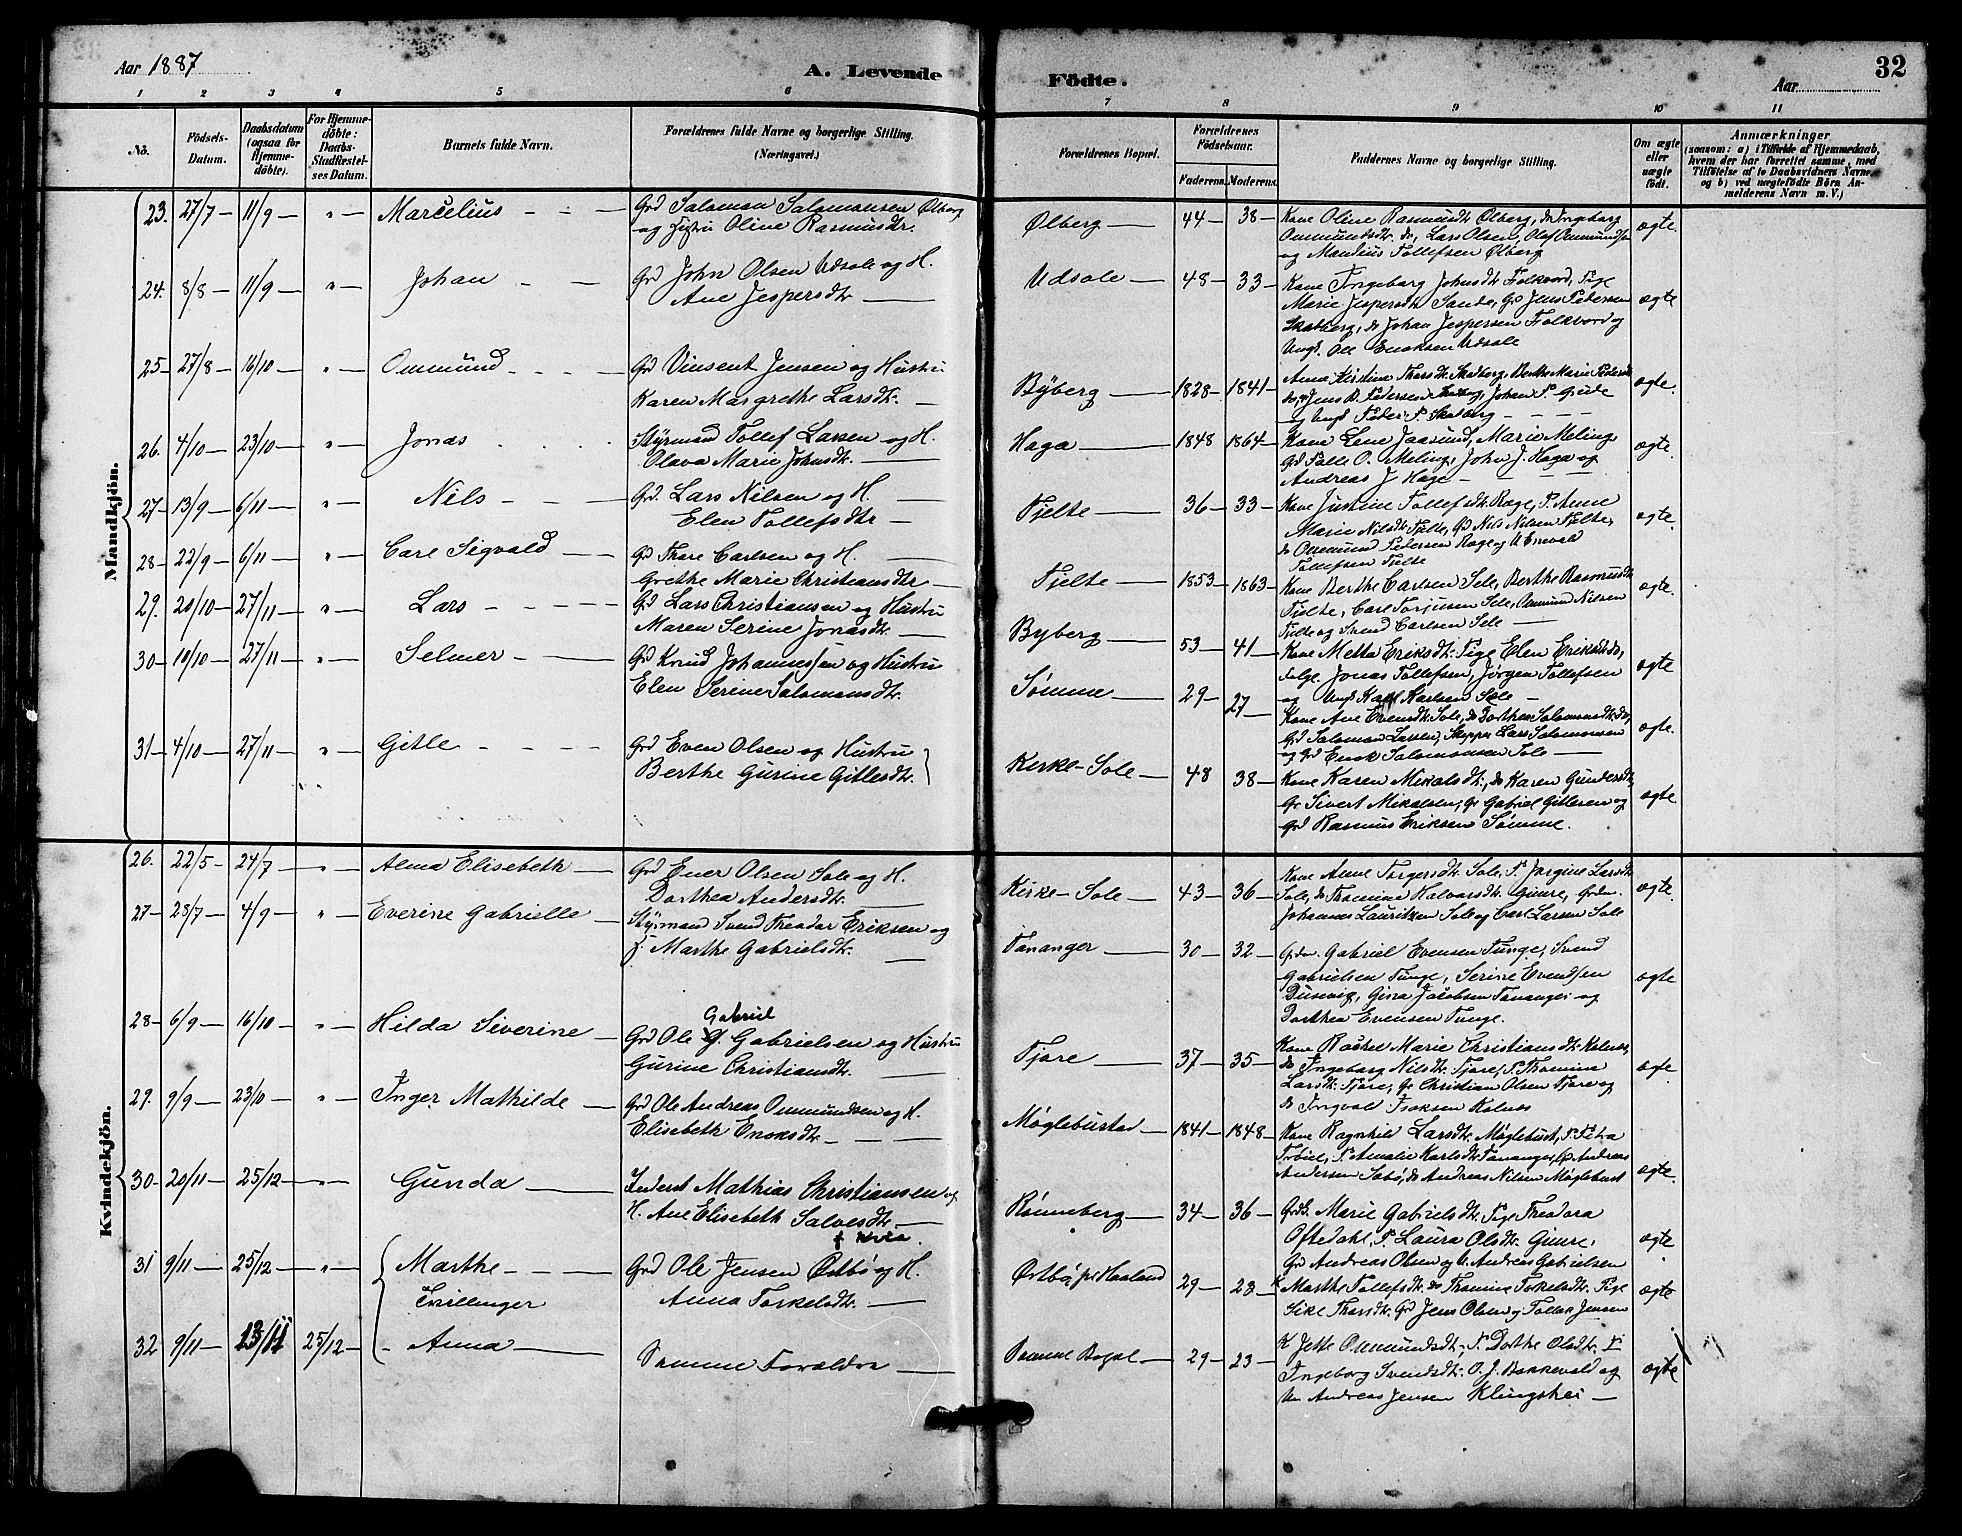 Aar 1887
A. Levende
Födte.
Aar
32
1 2 3 4 5 6 7 8 9 10 11
No.
Födsels-
Datum.
Daabsdatum
(ogsaa for
Hjemme-
döbte).
For Hjemme-
döbte:
Daabs-
Stadfæstel-
ses Datum.
Barnets fulde Navn.
Forældrenes fulde Navne og borgerlige Stilling.
(Næringsvei.)
Forældrenes Bopæl.
Forældrenes
Födselsaar.
Faderens.
Moderens.
Faddernes Navne og borgerlige Stilling.
Om ægte
eller
uægte
födt.
Anmærkninger
(saasom: a) i Tilfælde af Hjemmedaab,
hvem der har forrettet samme, med
Tilföielse af to Daabsvidners Navne,
og b) ved uægtefödte Börn An-
melderens Navn m. V.)
Mandkjön.
23. 27/7 – 11/9 – " – Marcelius – – –
Grd Salomon Salomonsen Ølberg
og Hustru Oline Rasmusdtr.
Ølberg – 44 – 38 –
Kone Oline Rasmusdtr Ølberg, do Ingeborg
Ommundsdtr. do, Lars Olsen, Olaf Ommundsen
og Mandius Tollefsen Ølberg
ægte
24. 8/8 – 11/9 – " – Johan – –
Grd John Olsen Udsole og H.
Ane Jespersdtr –
Udsole – 48 – 33 –
Kone Ingeborg Johnsdtr Folkvord, Pige
Marie Jespersdtr Sande, Grd Jens Pedersen
Skadberg, do Johan Jespersen Folkvord og
Ungk. Ole Enoksen Udsole
ægte
25 – 27/8 – 16/10 – " – Ommund – – –
Grd Vinsent Jensen og Hustru
Karen Margrethe Larsdtr. –
Byberg – 1828 – 1841 –
Anna Kirstine Thorsdtr. Skadberg, Berthe Marie Pedersdtr
do, Jens B. Pedersen Skadberg, Johan P. Grude
og Ungk Peder P. Skadberg – – –
ægte.
26. 4/10 – 23/10 – " – Jonas
Styrmand Tollef Larsen og H.
Olava Marie Johnsdtr. –
Haga – 1848 1864 –
Kone Lene Jaasund, Marie Meling,
Grd Palle O. Meling, John J. Haga og
Andreas J Hage –
ægte.
27 – 13/9 – 6/11 – " – Nils – – –
Grd. Lars Nilsen og H. –
Elen Tollefsdtr –
Tjelte – 36 – 33 –
Kone Justine Tollefsdtr. Ræge, P. Anne
Marie Nilsdtr. Tjelte, Grd Nils Nilsen Tjelte,
do Ommund Pedersen Ræge og U Enevald
Tollefsen Tjelte
ægte.
28 – 22/9 – 6/11 – " – Carl Sigvald –
Grd Thore Carlsen og H. –
Grethe Marie Christiansdtr –
Tjelte – 1853 – 1863 –
Kone Berthe Carlsen Sele, Berthe Rasmusdtr
Tjelte, Carl Torjusen Sele, Ommund Nilsen
Tjelte og Svend Carlsen Sele –
ægte.
29. 20/10 – 27/11 – " – Lars – – – –
Grd Lars Christiansen og Hustru
Maren Serine Jonasdtr. –
Byberg – 53 – 41 –
Kone Metta Eriksdtr. Pige Elen Eriksdtr. do,
Selge Jonas Tollefsen, Jørgen Tollefsen
og Ungk Karl Karlsen Sole –
ægte
30 – 10/10 – 27/11 – " – Selmer – –
Grd Knud Johannessen og Hustru
Elen Serine Salomonsdtr.
Sømme – 29 – 27 –
Kone Ane Evensdtr. Sole, do Dorthea Salomonsdtr. do,
Grd Salomon Larsen, Skipper Lars Salomonsen
og Grd Enok Salomonsen Sole –
ægte.
31 – 4/10 – 27/11 – " – Gitle – – –
Grd Even Olsen og Hustru
Berthe Gurine Gitlesdtr.
Kirke-Sole – 48 38 –
Kone Karen Mikalsdtr., do Karen Gundersdtr,
Gr Sivert Mikalsen, Gr Gabriel Gitlesen og
Grd Rasmus Eriksen Sømme.
ægte
Kvindekjön.
26. 22/5 – 24/7 – " – Alma Elisebeth –
Grd Ener Olsen Sole og H.
Dorthea Andersdtr. –
Kirke-Sole – 43 – 36 –
Kone Anne Torgersdtr Sole, P. Jørgine Larsdtr
Sole, do Tromine Halvorsdtr. Gimre, Grdm.
Johannes Lauritzen Sole og Carl Larsen Sole
ægte.
27 – 28/7 – 4/9 – " – Everine Gabrielle –
Styrmand Svend Theodor Eriksen og
H Marthe Gabrielsdtr. –
Tananger – 30 – 32 –
Grdm. Gabriel Evensen Tunge, Svend
Gabrielsen Tunge, Serine Evendsen
Dusevig, Gina Jacobsen Tananger og
Dorthea Evensen Tunge.
ægte
28 – 6/9 – 16/10 – " – Hilda Siverine –
Gabriel
Grd Ole G. Gabrielsen og Hustru
Gurine Christiansdtr. –
Tjore – 37 – 35 –
Kone Rachel Marie Christiansdtr. Kolnes,
do Ingeborg Nilsdtr. Tjore, P. Thomine
Larsdtr. Tjore, Gr Christian Olsen Tjore og
do Ingvald Isaksen Kolnes
ægte.
29. 9/9 – 23/10 – " – Inger Mathilde –
Grd Ole Andreas Ommundsen og H.
Elisebeth Enoksdtr. – – –
Møglebustad – 1841 – 1848 –
Kone Ragnhild Larsdtr. Møglebust, P. Petra
P. Amalie Karlsdtr. Tananger, Gr Andreas
Andersen Sebø, do Andreas Nilsen Møglebust
ægte.
30 – 20/11 – 25/12 – " – Gunda –
Inderst Mathias Christiansen og
H. Ane Elisebeth Salvesdtr. –
Rønneberg – 34 – 36 –
Grdk. Marie Gabrielsdtr. Pige Theodora
Oftedahl, P. Laura Olsdtr. Gimre,
Gr Andreas Olsen og U. Andreas Gabrielsen
ægte
31 9/11 – 25/12 – " – Marthe – – –
Tvillinger
Grd Ole Jensen Østbø og H.
Anna Torkelsdtr. –
Østbø på Haaland 29 – 23
K Marthe Tollefsdtr. do Tromine Torkelsdtr. Pige
Sike Thorsdtr. Grd Jens Olsen og Tollak Jensen
ægte
32 9/11 – 13/11 25/12 – – Anna –
Samme Forældre –
Samme Bopæl – 29 – 23 –
K Jette Ommundsdtr. P Dorthe Olsdtr. P
Ingeborg Svendsdtr. O. J. Bakkevold og
Um Andreas Jensen Klingshei –
ægte